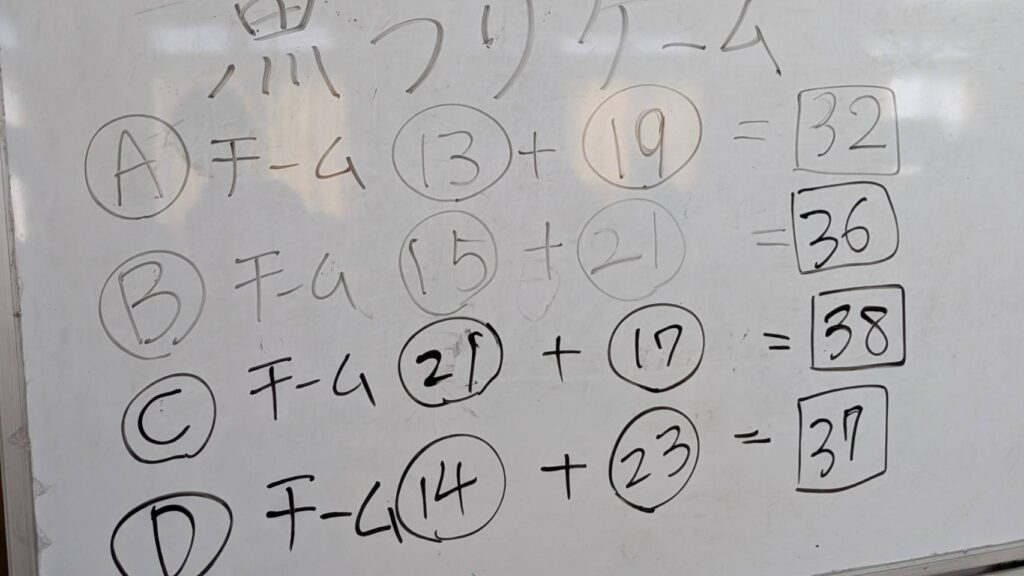 魚つりゲーム
Ⓐ チーム ⑬ + ⑲ = 32
Ⓑ チーム ⑮ + ㉑ = 36
Ⓒ チーム ㉑ + ⑰ = 38
Ⓓ チーム ⑭ + ㉓ = 37